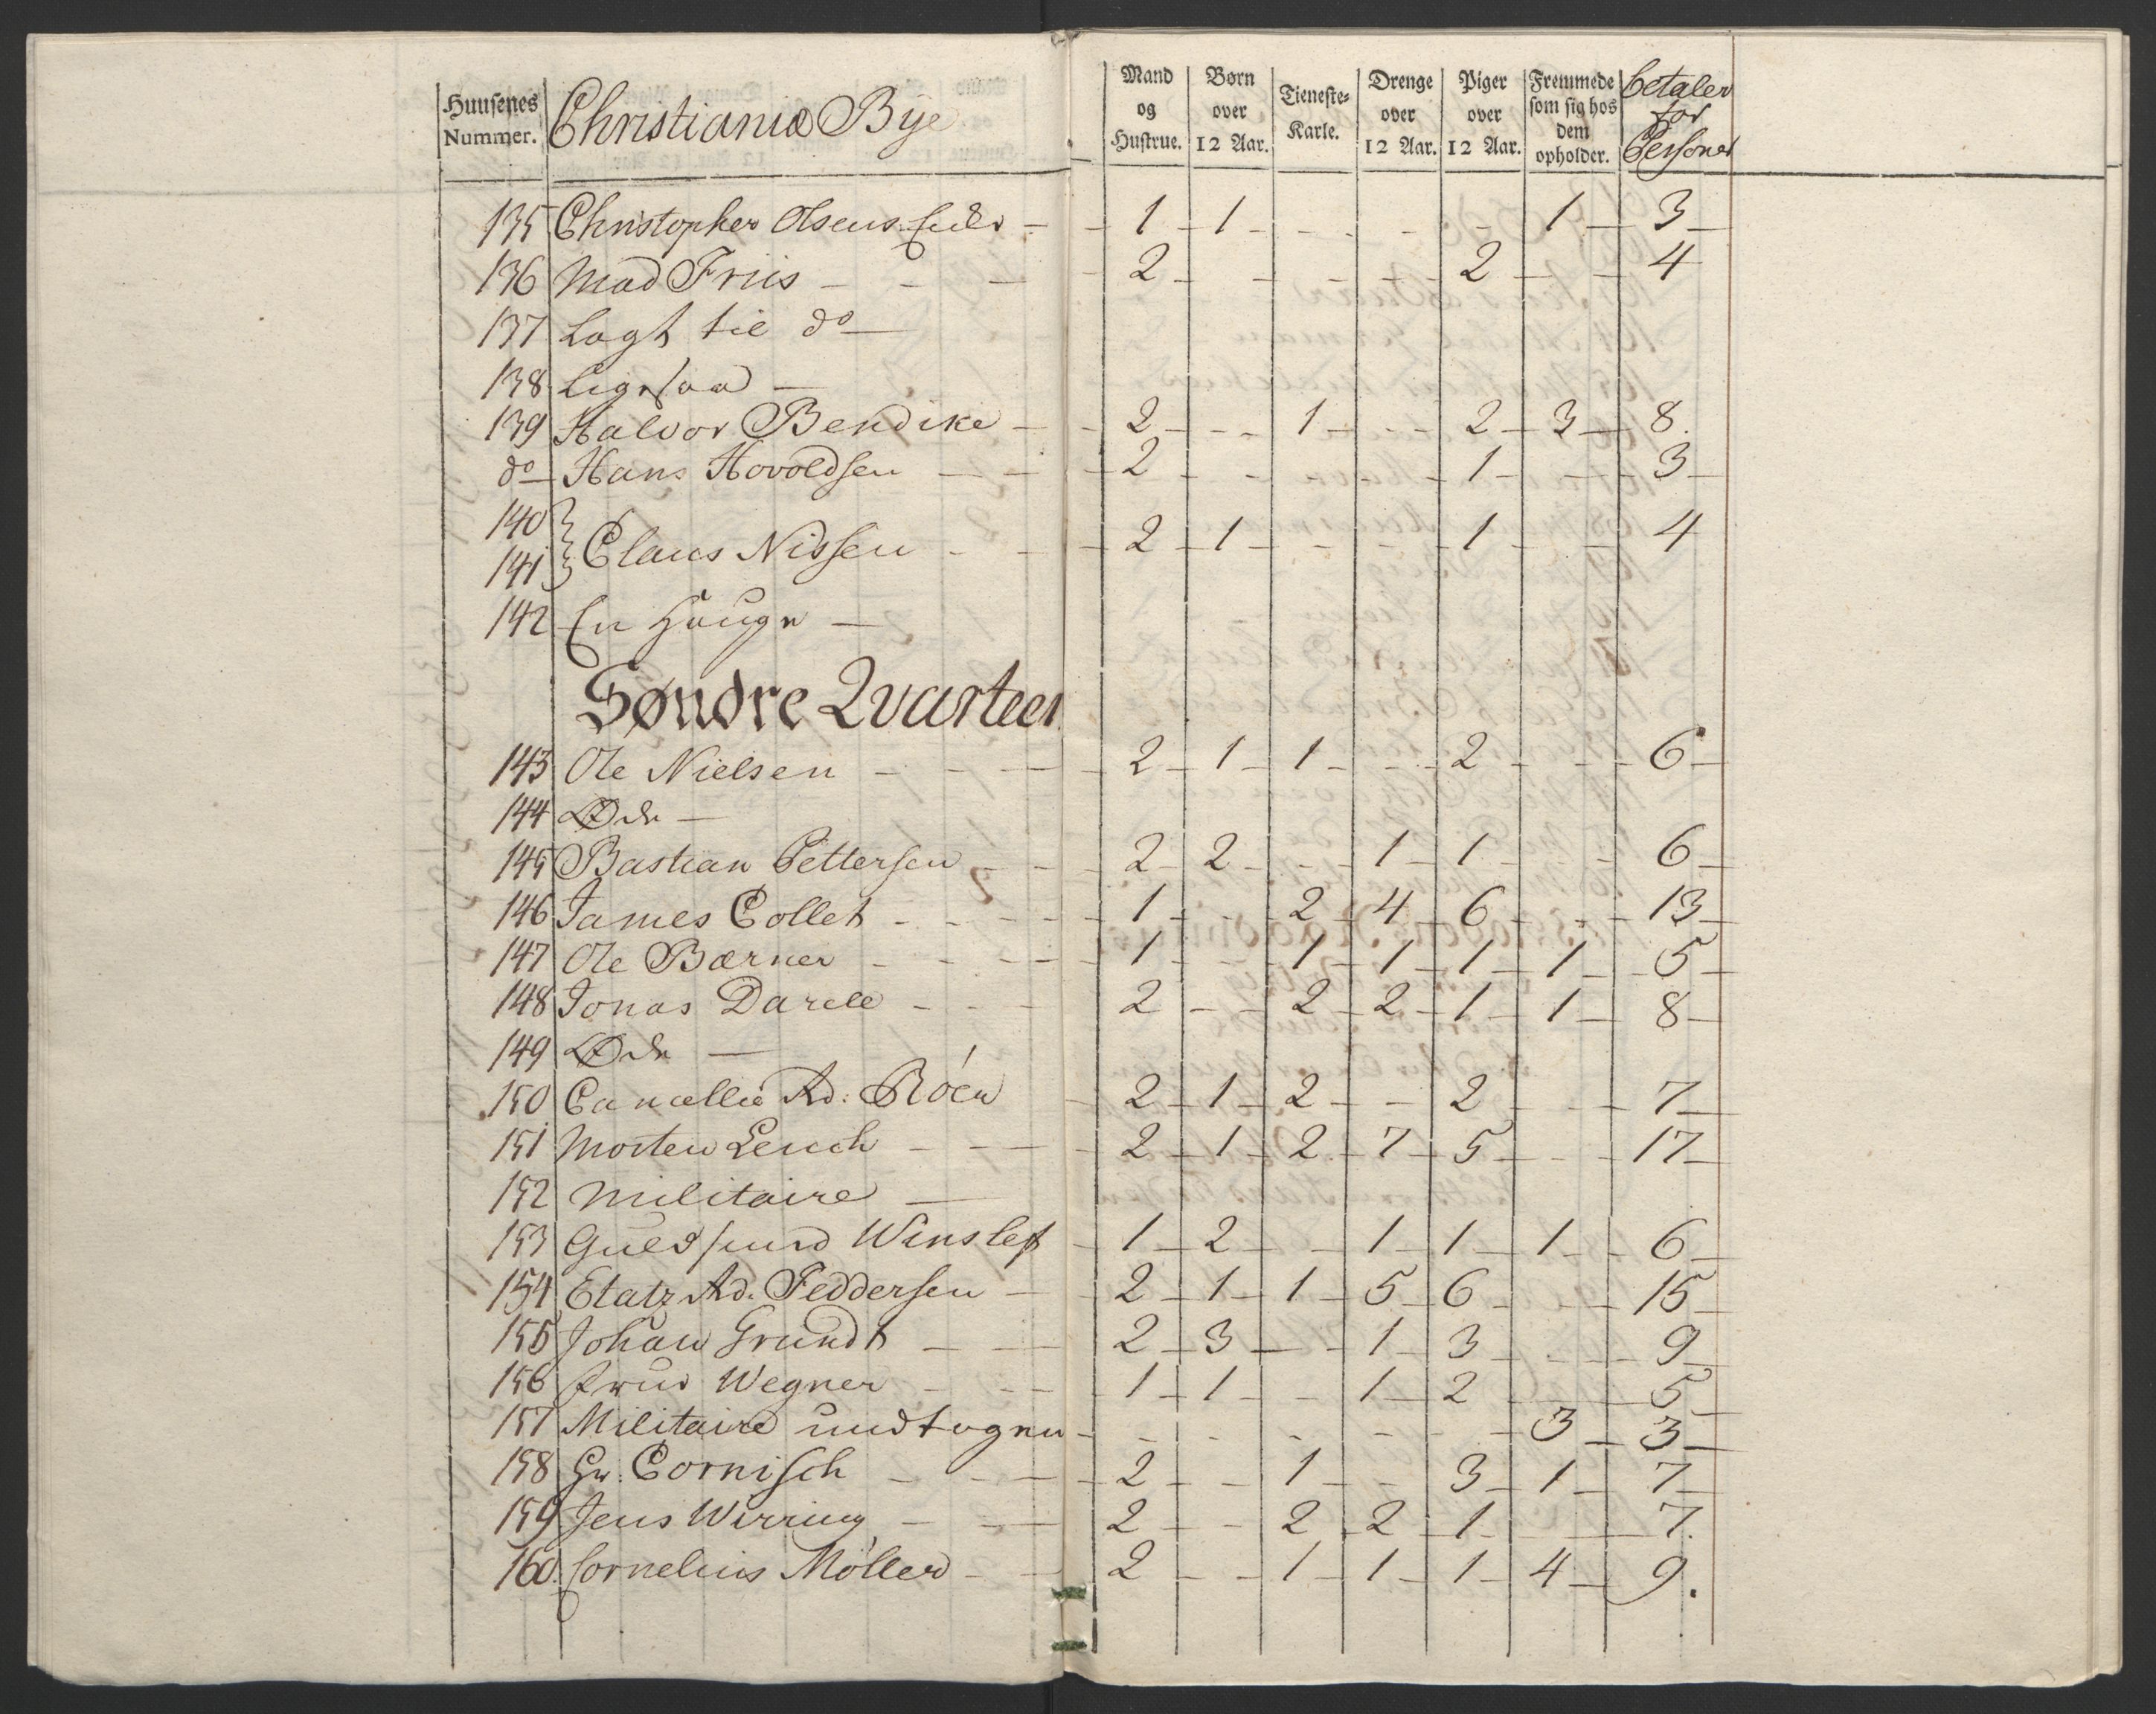 Huusenes Nummer. | Christiania Bÿe | Mand og Hustrue. | Børn over 12 Aar. | Tieneste-Karle. | Drenge over 12 Aar. | Piger over 12 Aar. | Fremmede som sig hos dem opholder. | betaler for Persones
135 Christopher Olsens Encke - 1 - 1 - - - - 1 - 3 -
136 Mad Friis - - - 2 - - - - 2 - - 4
137 Lagt til do -
138 Ligesaa -
139 Halvor Bendike - 2 - - 1 - - 2 - 3 - 8.
do - Hans Hovoldsen - - 2 - - - - 1 - - 3 -
140
141 } Claus Nissen - - 2 - 1 - - - 1 - - 4
142 En Hauge -
Søndre Qvarteer
143 Ole Nielsen - - - 2 - 1 - 1 - - - 2 - - 6 -
144 Øde -
145 Bastian Pettersen - - 2 - 2 - - 1 - 1 - - 6 -
146 James Collet - - - 1 - - 2 - 4 - 6 - - 13 -
147 Ole Bærner - - - 1 - - 1 - 1 - 1 - 1 - 5 -
148 Jonas Darell - - - 2 - - 2 - 2 - 1 - 1 - 8 -
149 Øde -
150 Cancellie Rd: Róen 2 - 1 - 2 - - 2 - - 7 -
151 Morten Leuch - - - 2 - 1 - 2 - 7 - 5 - - 17 -
152 Militaire -
153 Guldsmed Winslef - 1 - 2 - - 1 - 1 - 1 - 6 -
154 Etatz Rd. Feddersen - 2 - 1 - 1 - 5 - 6 - - 15 -
155 Johan Grundt - - 2 - 3 - - 1 - 3 - - 9 -
156 Frue Wegner - - - 1 - 1 - - 1 - 2 - - 5 -
157 Militaire undtagen - - - - - - 3 - 3 -
158 Hr. Cornisch - - - 2 - - 1 - - 3 - 1 - 7 -
159 Jens Wirring - - 2 - - 2 - 2 - 1 - - 7.
160. Cornelius Möller - - 2 - - 1 - 1 - 1 - 4 - 9.